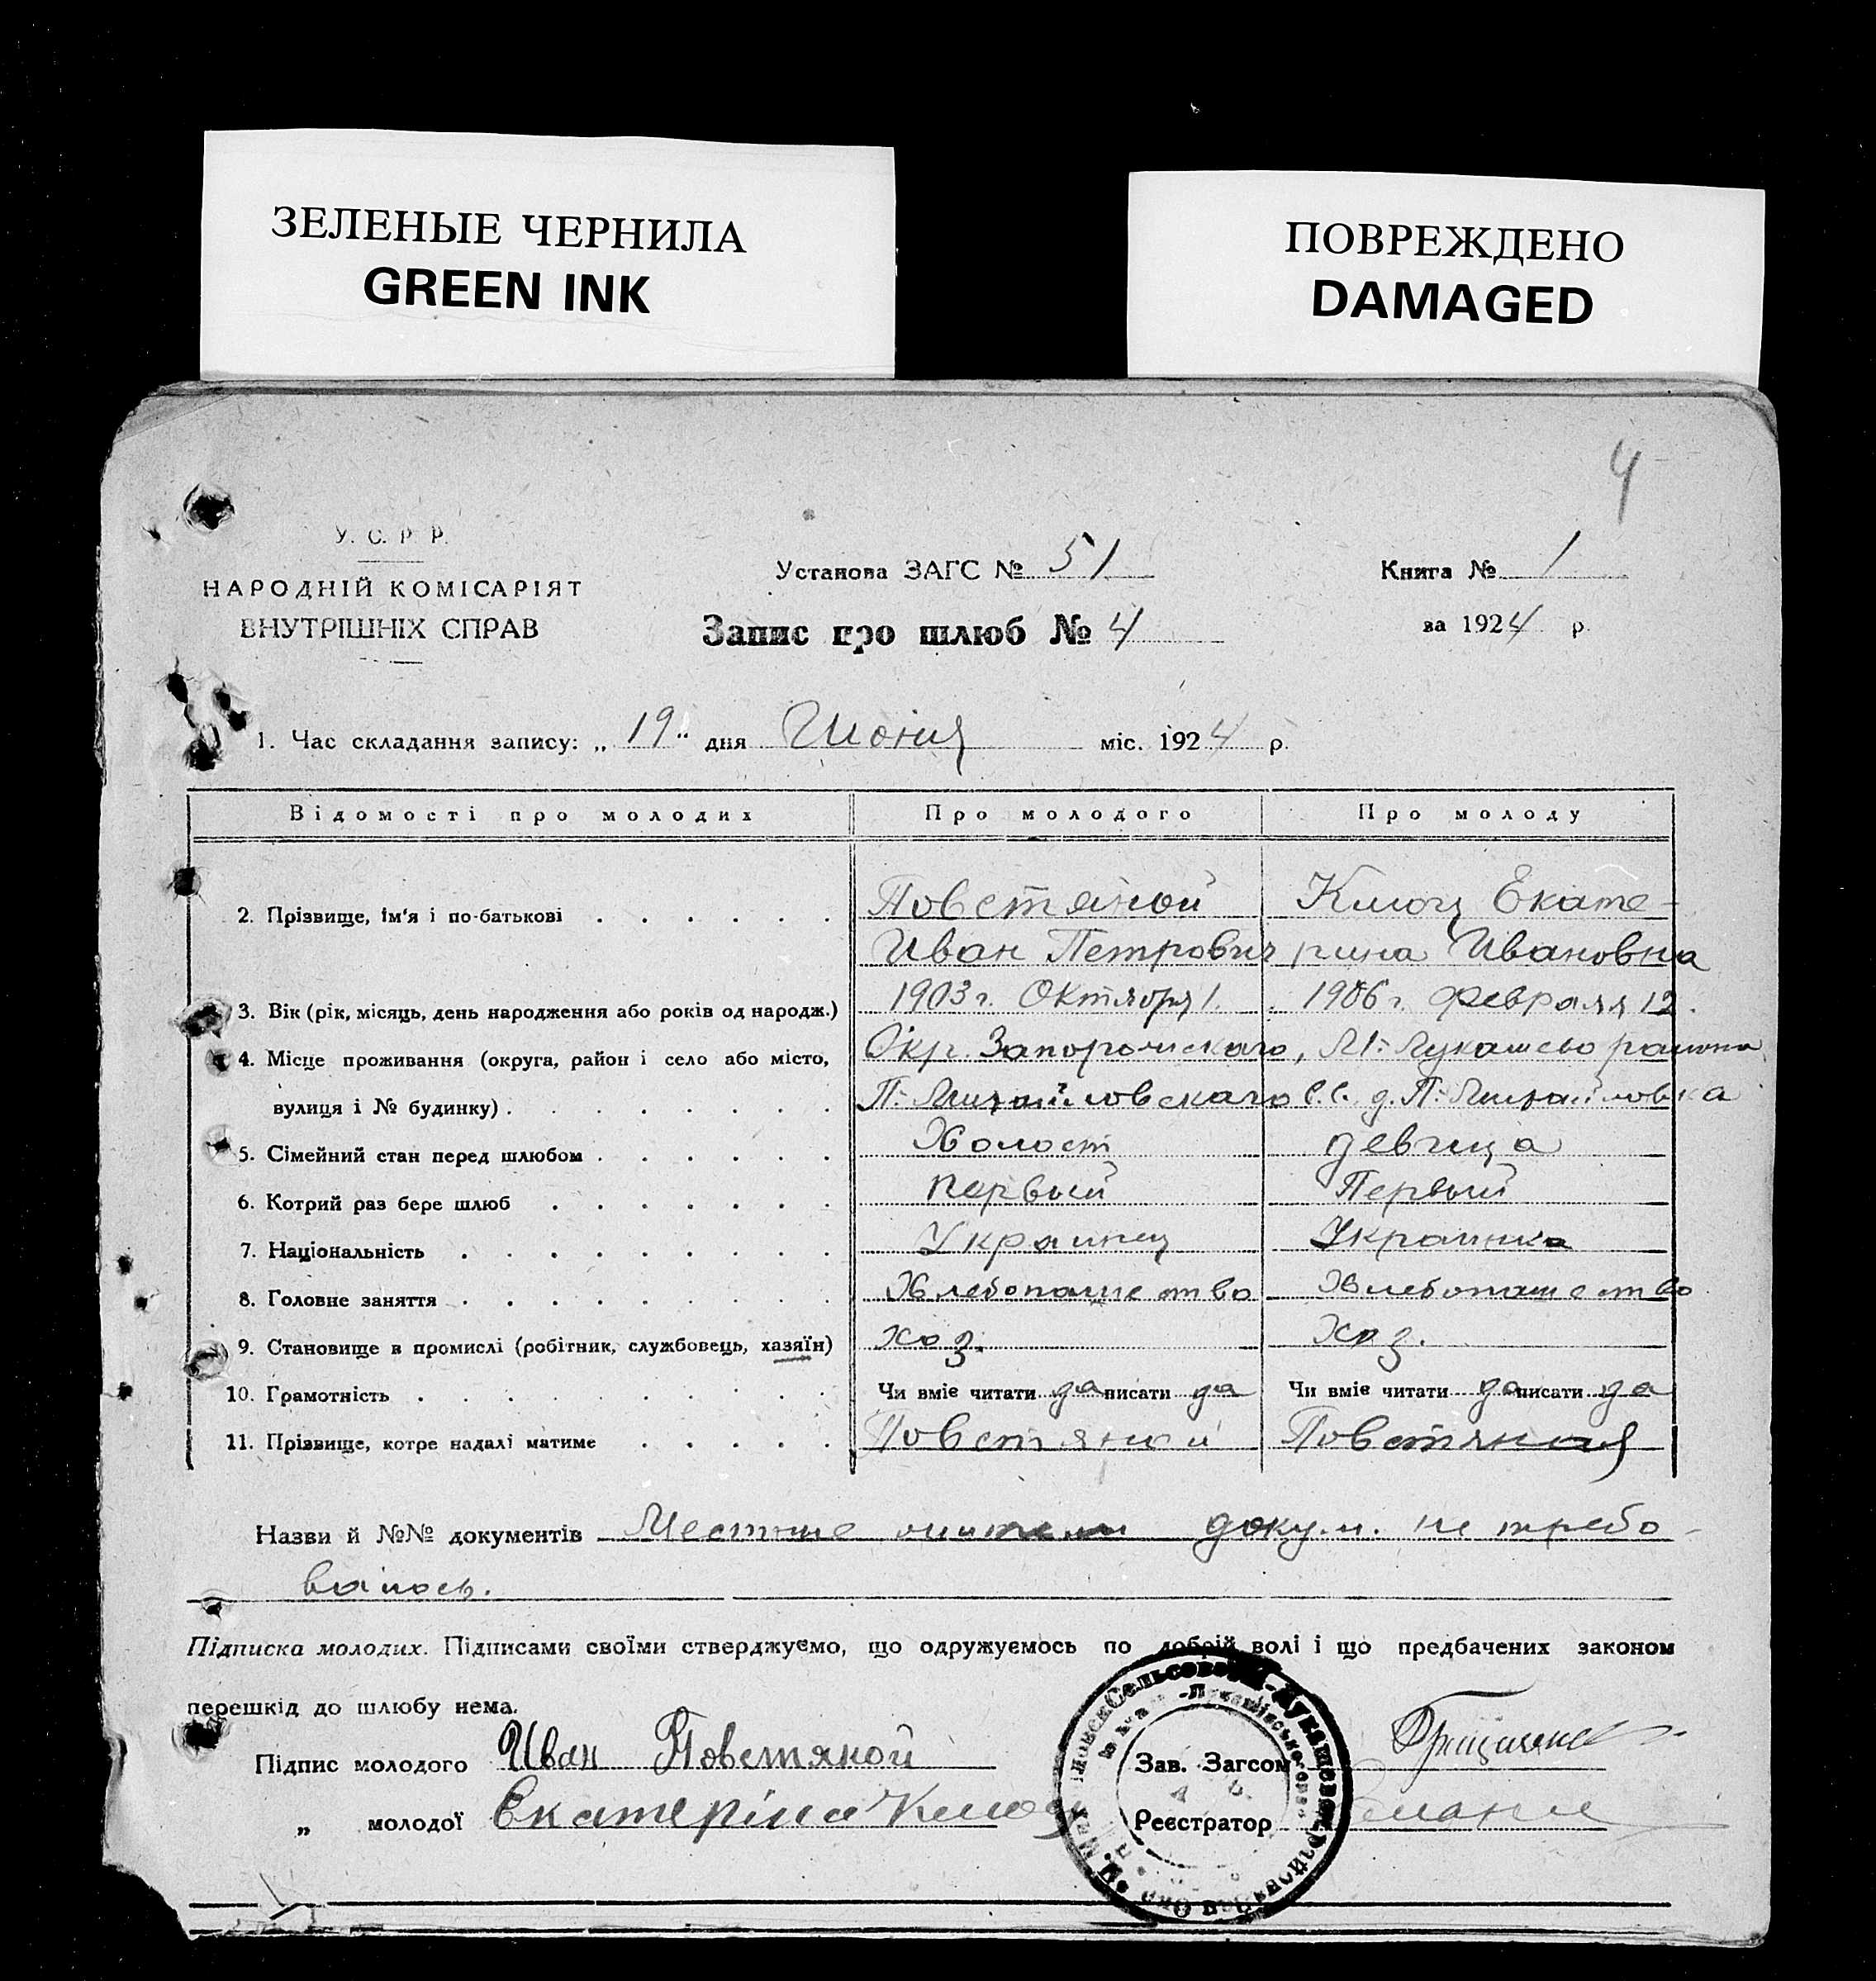 ЗЕЛЕНЫЕ ЧЕРНИЛА
GREEN INK
ПОВРЕЖДЕНО
DAMAGED
4
У. С. Р. Р.
НАРОДНІЙ КОМІСАРІЯТ
ВНУТРІШНІХ СПРАВ
Установа ЗАГС № 51
Книга № 1
Запис про шлюб № 4
за 1924 р.
1. Час складання запису: „ 19 " дня Июня міс. 1924 р.
Відомості про молодих Про молодого Про молоду
2. Прізвище, ім'я і по-батькові Повстяной Ключ Екате-
Иван Петрович рина Ивановна
3. Вік (рік, місяць, день народження або років од народж.) 1903 г. Октября 1. 1906 г. февраля 12.
4. Місце проживання (округа, район і село або місто, Окр. Запорожскаго, М-Лукашево района
вулиця і № будинку) П-Михайловскаго С.С. д. П-Михайловка
5. Сімейний стан перед шлюбом Холост девица
6. Котрий раз бере шлюб первый Первый
7. Національність Украинец Украинка
8. Головне заняття Хлебопашество Хлебопашество
9. Становище в промислі (робітник, службовець, хазяїн) хоз. Хоз.
10. Грамотність Чи вміє читати да писати да Чи вміє читати да писати да
11. Прізвище, котре надалі матиме Повстяной Повстяная
Назви й №№ документів Местные жители докум. не требо-
валось.
Підписка молодих. Підписами своїми стверджуємо, що одружуємось по добрій волі і що предбачених законом
перешкід до шлюбу нема.
Підпис молодого Иван Повстяной Зав. Загсом
„ молодої Екатеріна Ключ Реєстратор